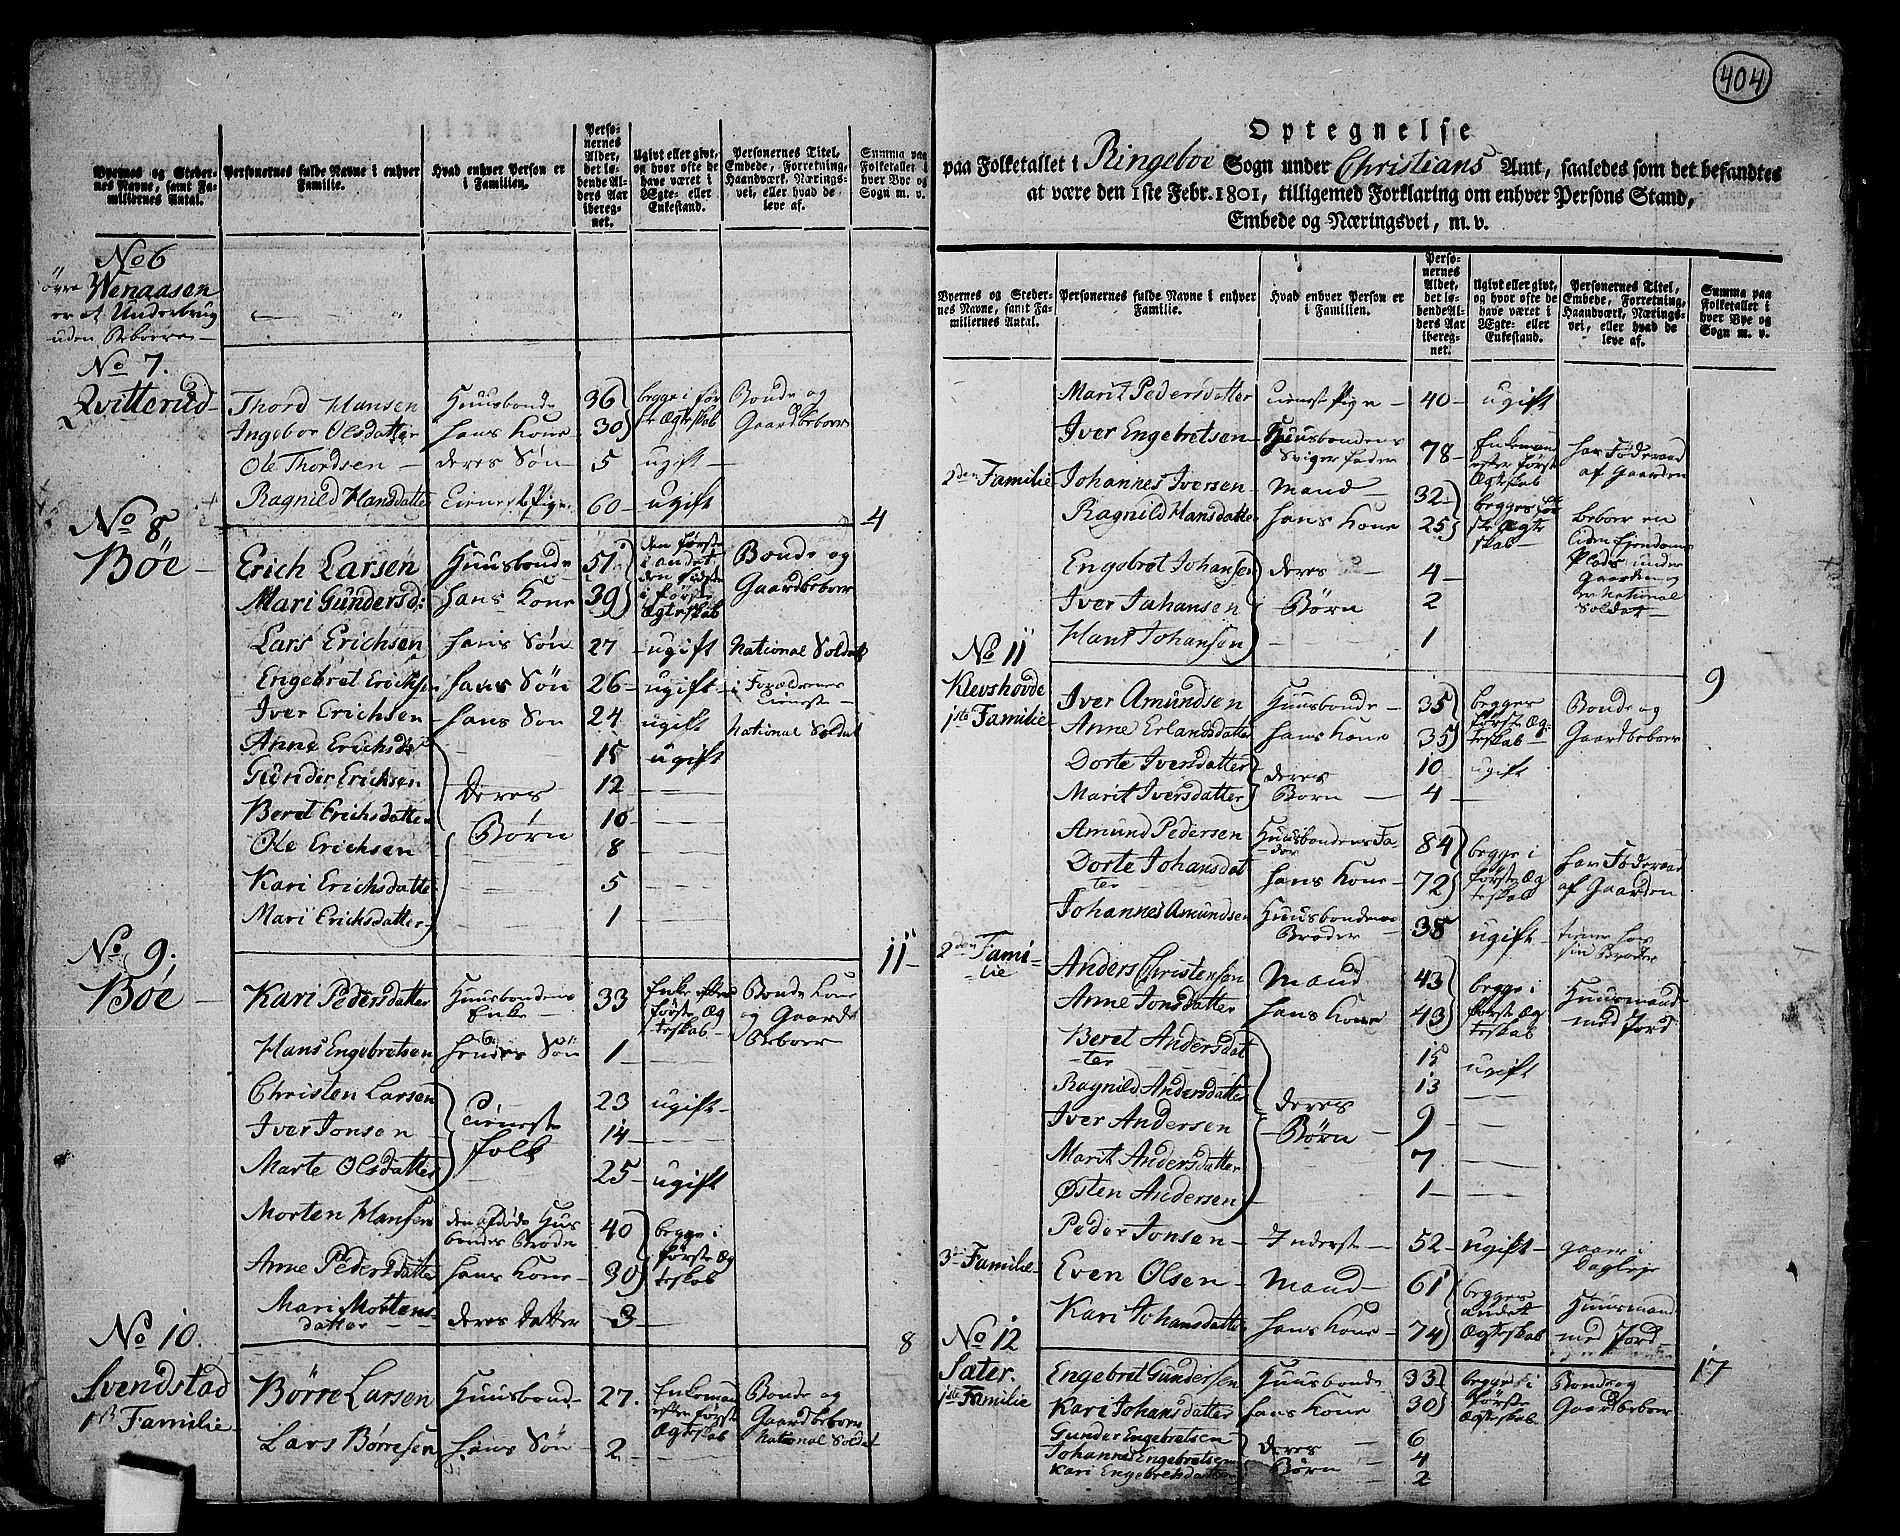 404
Byernes og Stedernes Navne, samt Familiernes Antal.
Personernes fulde Navne i enhver Familie.
Hvad enhver Person er i Familien.
Personernes Alder, det løbende Alders Aar iberegnet.
Ugivt eller givt, og hvor ofte de have været i Ægte- eller Enkestand.
Personernes Titel, Embede, Forretning, Haandværk, Næringsvei, eller hvad de leve af.
Summa paa Folketallet i hver Bye og Sogn m. v.
No 6
övre Wenaasen
er et Underbrug
uden Beboere
No 7.
Qvitterud
Thord Hansen Huusbonde 36 begge i før- Bonde og
Ingebor Olsdatter hans Kone 30 ste Ægteskab Gaardbeboer
Ole Thordsen deres Søn 5 ugift
Ragnild Hansdatter Tieneste Pige 60 ugift
4
No 8
Böe
Erich Larsen Huusbonde 51 den første i andet Bonde og
Mari Gundersd: hans Kone 39 den sidste i første Ægteskab Gaardbeboer
Lars Erichsen hans Søn 27 ugift National Soldat
Engebret Erichsen hans Søn 26 ugift i Forældrenes tieneste
Iver Erichsen hans Søn 24 ugift National Soldat
Anne Erichsd: 15 ugift
Gunder Erichsen deres 12
Beret Erichsdatter Børn 10
Ole Erichsen 8
Kari Erichsdatter 5
Mari Erichsdatter 1
11
No 9.
Böe
Kari Pedersdatter Huusbondens Enke 33 Enke efter første Ægteskab Bonde Kone og Gaardbeboer
Hans Engebretsen hendes Søn 1
Christen Larsen 23 ugift
Iver Jonsen tieneste 14
Marte Olsdatter folk 25 ugift
Morten Hansen den afdøde Husbondes Broder 40 begge i
Anne Pedersdatter hans Kone 30 første Ægteskab
Mari Mortensdatter deres Datter 3
8
No 10.
Svendstad
1ste Familie
Børre Larsen Huusbond 27. Enkemand efter første Ægteskab Bonde og Gaardbeboer National Soldat
Lars Børresen hans Søn 2
Optegnelse
paa Folketallet i Ringeboe Sogn under Christians Amt, saaledes som det befandtes
at være den 1ste Febr. 1801, tilligemed Forklaring om enhver Persons Stand,
Embede og Næringsvei, m. v.
Byernes og Stedernes Navne, samt Familiernes Antal.
Personernes fulde Navne i enhver Familie.
Hvad enhver Person er i Familien.
Personernes Alder, det løbende Alders Aar iberegnet.
Ugivt eller givt, og hvor ofte de have været i Ægte- eller Enkestand.
Personernes Titel, Embede, Forretning, Haandværk, Næringsvei, eller hvad de leve af.
Summa paa Folketallet i hver Bye og Sogn m. v.
Marit Pedersdatter tieneste Pige 40 ugift
Iver Engebretsen Huusbondens Sviger fader 78 Enkemand efter første Ægteskab har Föderaad af Gaarden
2den Familie
Johannes Iversen Mand 32 begge i før- beboer en
Ragnild Hansdatter hans Kone 25 ste Ægteskab liden Ejendoms Plads under Gaarden og er National Soldat
Engebret Johansen deres 4
Iver Johansen Børn 2
Hans Johansen 1
9
No 11
Klevshovde
1ste Familie
Iver Amundsen Huusbonde 35 begge i Bonde og
Anne Erlandsdatter hans Kone 35 første Ægteskab Gaardbeboer
Dorte Iversdatter deres 10 ugift
Marit Iversdatter Børn 4
Amund Pedersen Huusbondens Fader 84 begge i har Föderaad
Dorte Johansdatter hans Kone 72 første Ægteskab af Gaarden
Johannes Amundsen Huusbondens Broder 38 ugift tiener hos sin Broder
2den Familie
Anders Christensøn Mand 43 begge i Huusmand
Anne Jonsdatter hans Kone 43 første Ægteskab med Jord
Beret Andersdatter 15 ugift
Ragnild Andersdatter deres 13
Iver Andersen Børn 9
Marit Andersdatter 7
Østen Andersen 1
Peder Jonsen Inderste 52 ugift gaaer i Dagleje
3de Familie
Even Olsen Mand 61 begge i Huusmand
Kari Johansdatter hans Kone 74 andet Ægteskab med Jord
17
No 12
Sæter.
1ste Familie
Engebret Gundersen Huusbonde 33 begge i Bonde og
Kari Johansdatter hans Kone 30 første Ægteskab Gaardbeboer
Gunder Engebretsen deres 6
Johannes Engebretsen Børn 4
Kari Engebretsdatter 2